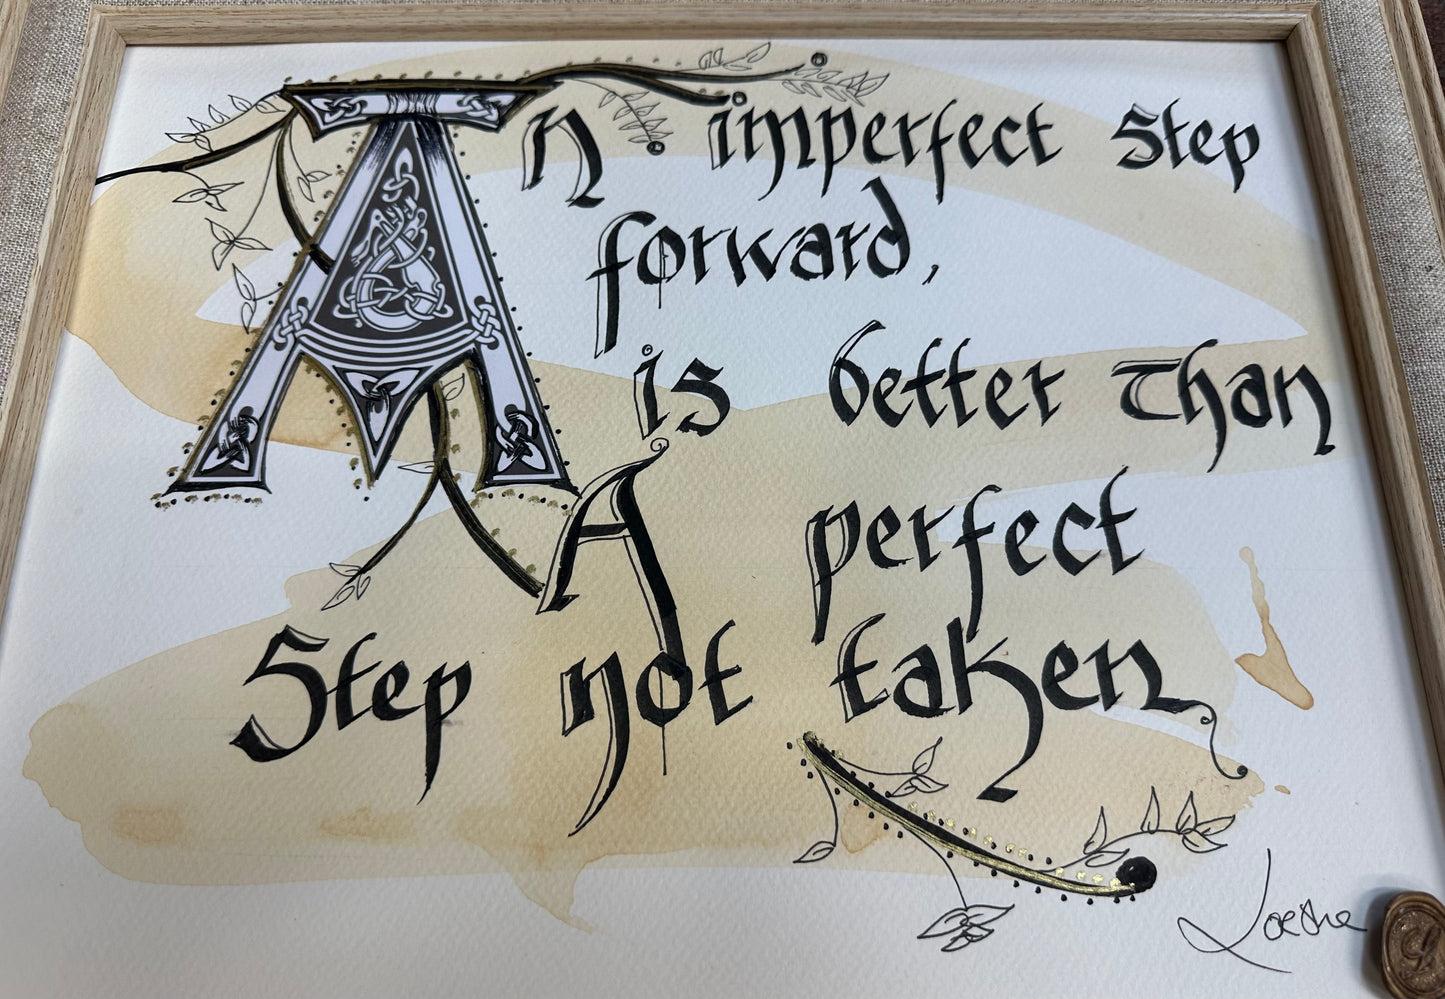 An imperfect Step
forward,
is better Than
A perfect
Step not taken